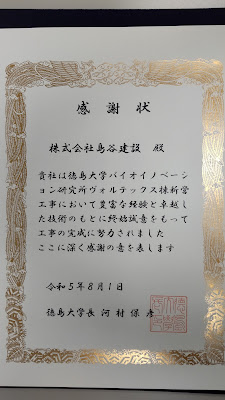 感謝状
株式会社島谷建設 殿
貴社は徳島大学バイオイノベーシ
ョン研究所ヴォルテックス棟新営
工事において豊富な経験と卓越し
た技術のもとに終始誠意をもって
工事の完成に努力されました
ここに深く感謝の意を表します
令和5年8月1日
徳島大学長 河村保彦